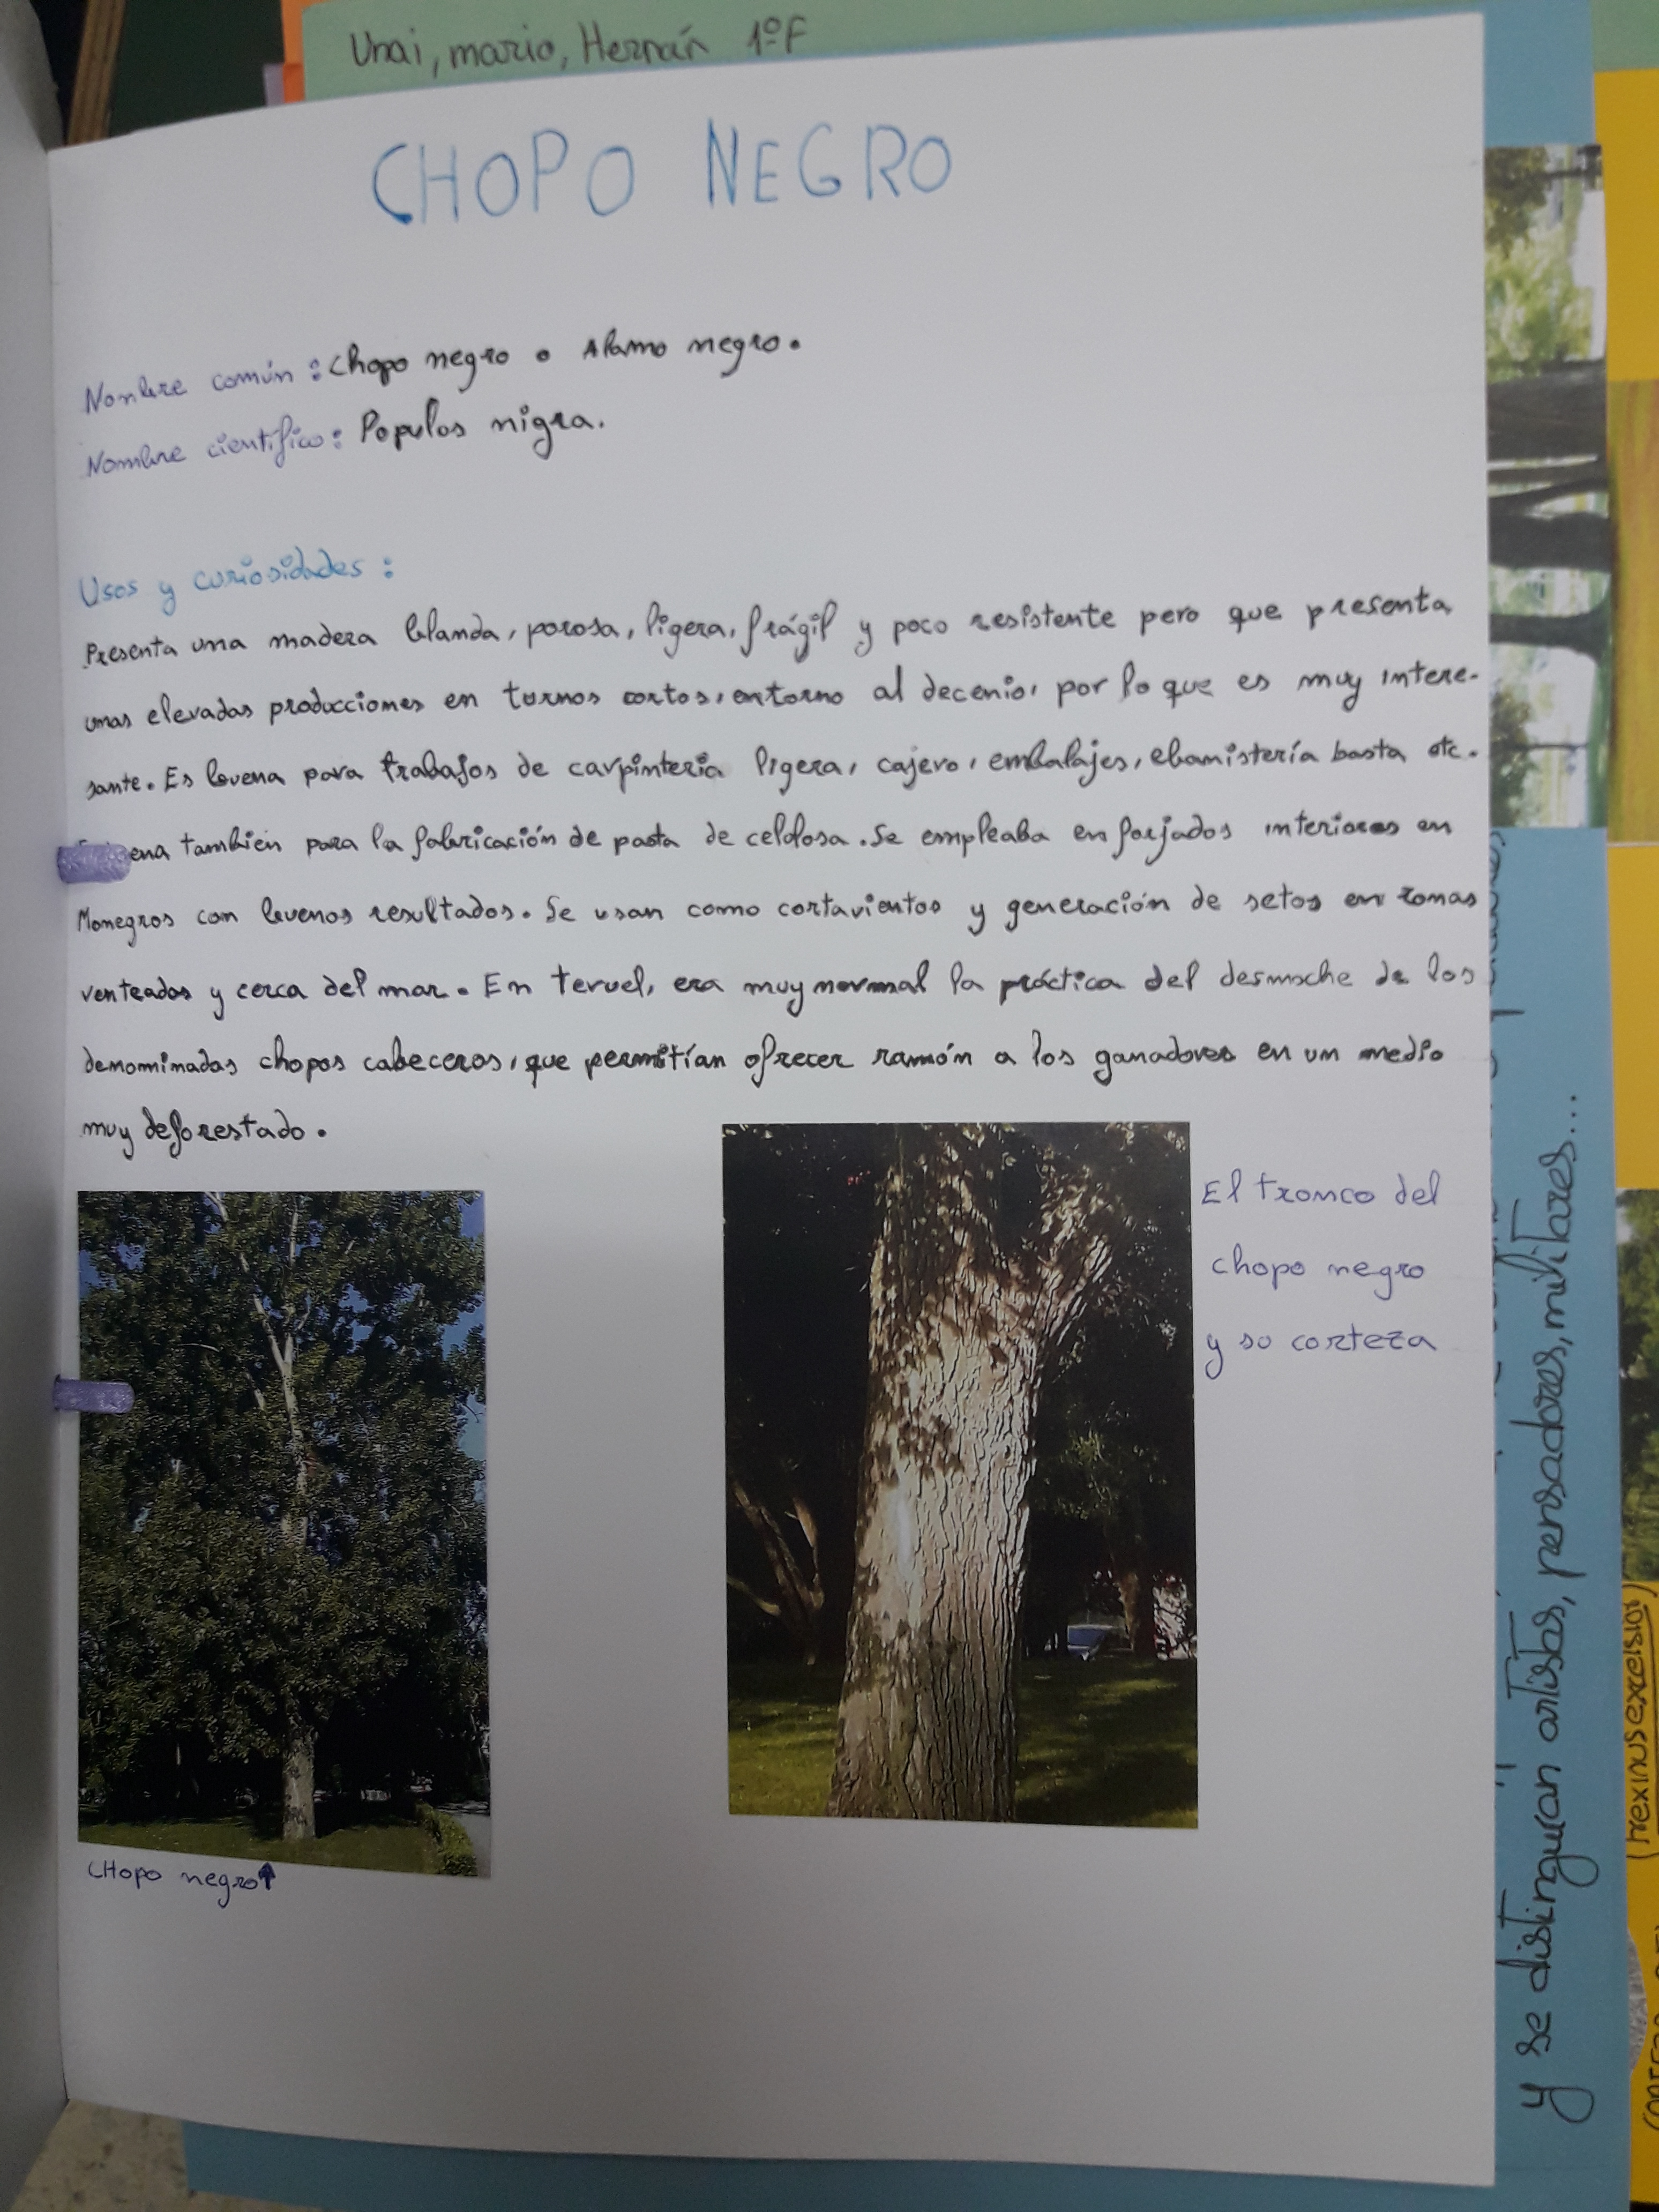 Unai, mario, Hernán 1ºF
CHOPO NEGRO
Nombre común: Chopo negro o Alamo negro.
Nombre científico: Populos nigra.
Usos y curiosidades:
Presenta una madera blanda, porosa, ligera, frágil y poco resistente pero que presenta
unas elevadas producciones en turnos cortos, entorno al decenio, por lo que es muy intere-
sante. Es buena para trabajos de carpinteria ligera, cajero, embalajes, ebanistería basta etc.
ena también para la fabricación de pasta de celulosa. Se empleaba en forjados interiores en
Monegros con buenos resultados. Se usan como cortavientos y generación de setos en zonas
venteadas y cerca del mar. En Teruel, era muy normal la práctica del desmoche de los
denominados chopos cabeceros, que permitían ofrecer ramón a los ganadores en un medio
muy deforestado.
El tronco del
chopo negro
y su corteza
CHopo negro↑
y se distinguían artistas, pensadores, militares...
(frexinus excelsior)